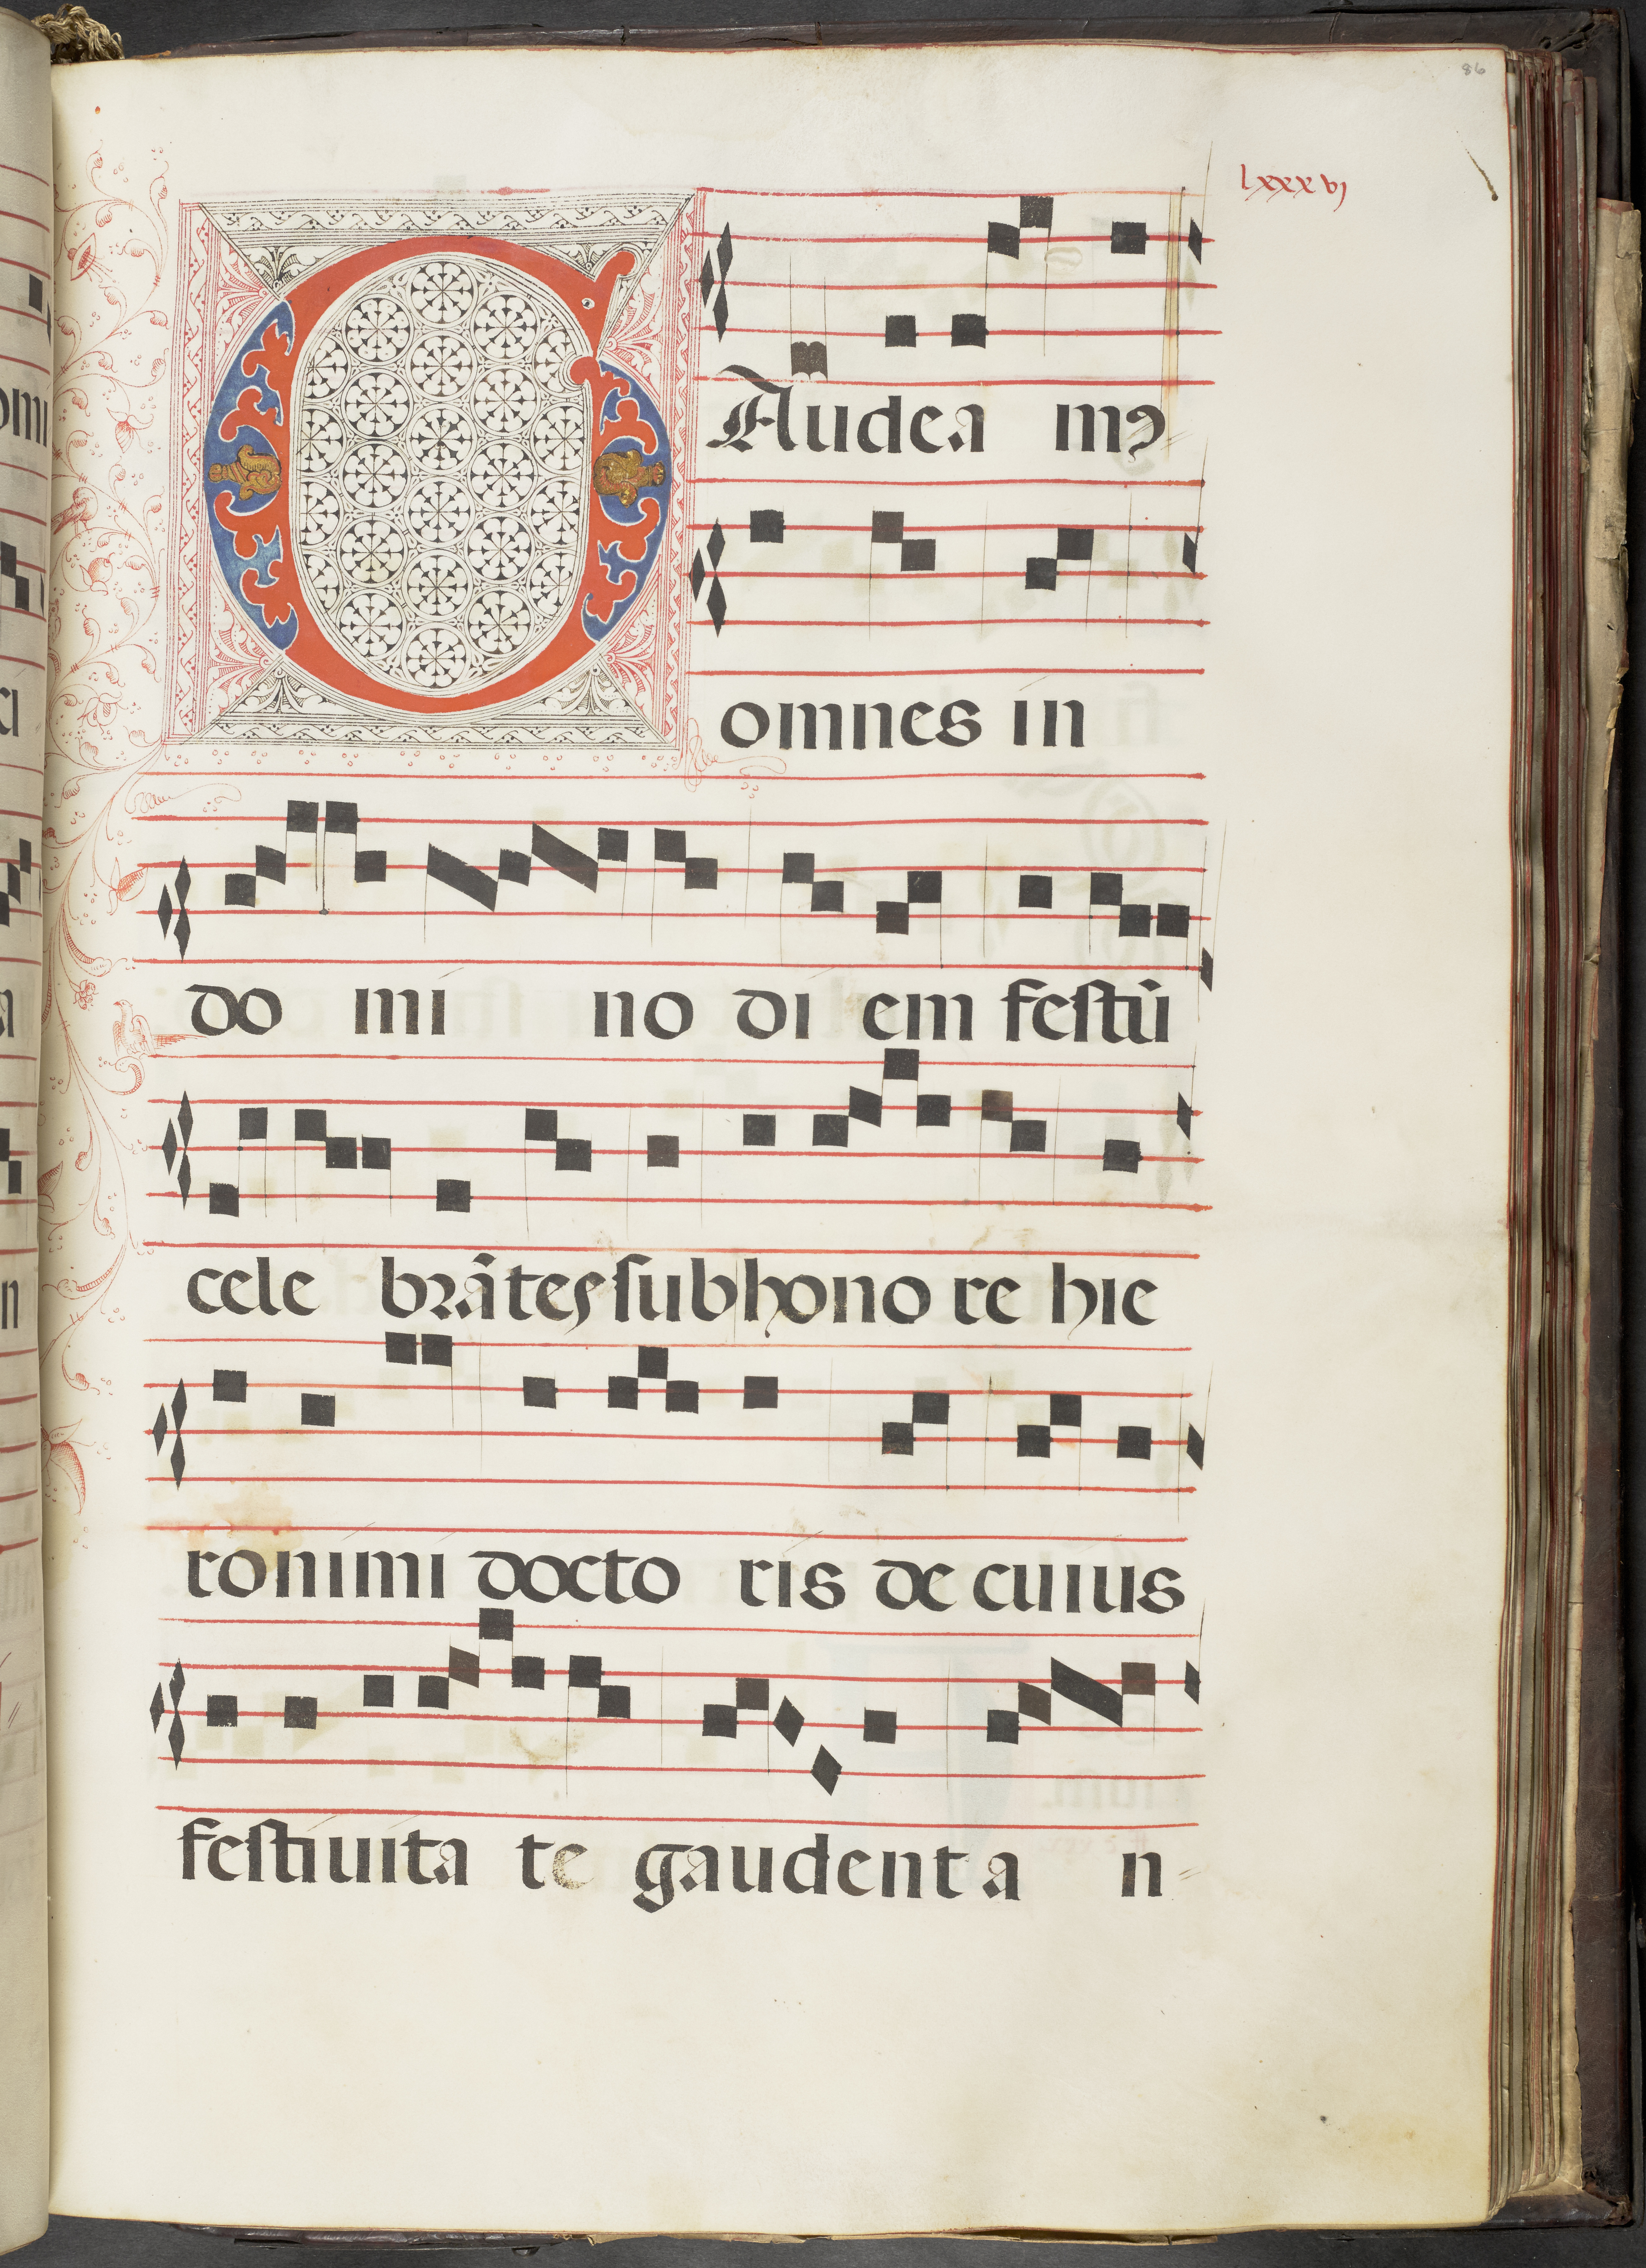 86
lxxxvj
GAudea mꝯ
omnes in
do mi no di em festū
cele brātes sub hono re hie
ronimi docto ris de cuius
festiuita te gaudent a n